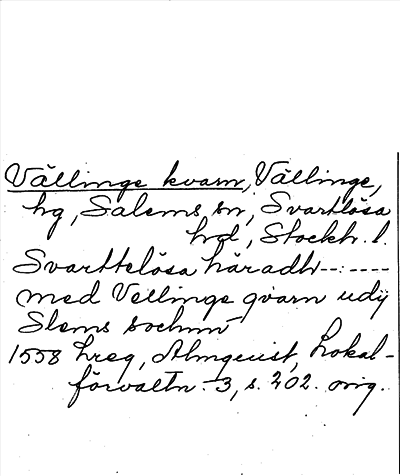 Vällinge kvarn, Vällinge,
hg, Salems sn, Svartlösa
hd, Stockh. l.
Svarttelösa häradh--:----
med Vellinge qvarn udij
Slems sochnn
1558 hreg, Almquist, Lokal-
förvaltn. 3, s. 202. orig.